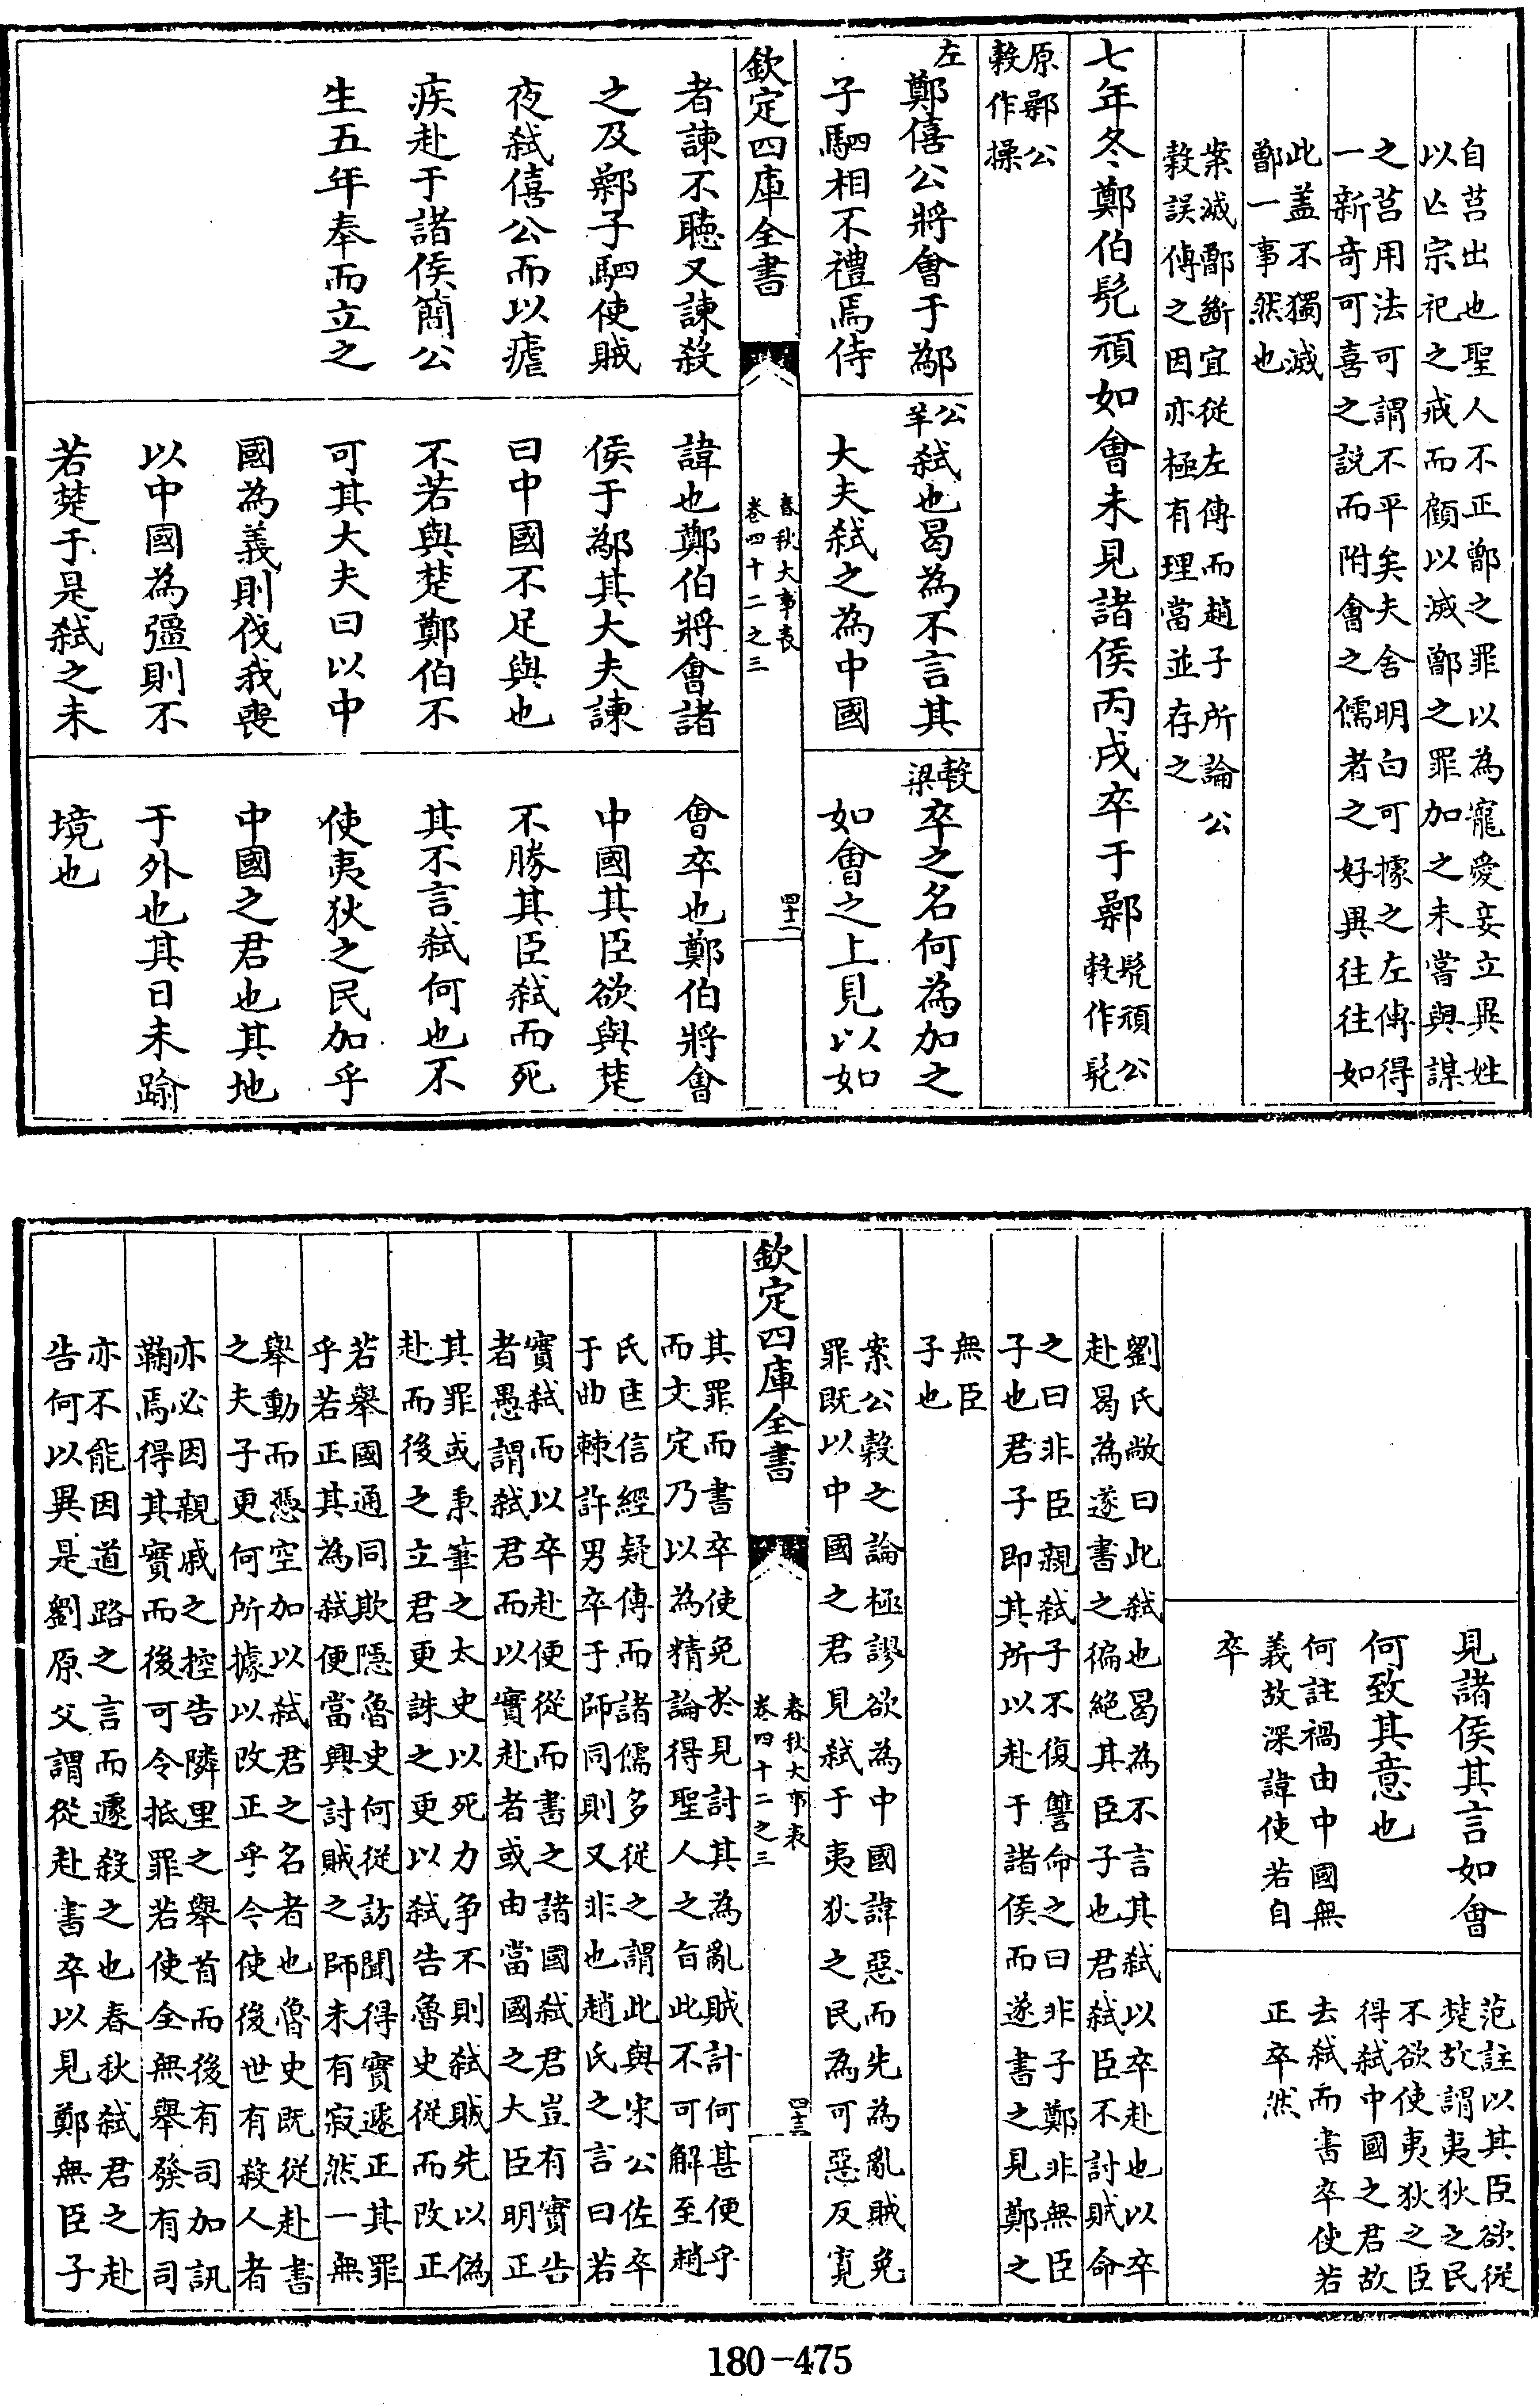 自莒出也聖人不正鄫之罪以為寵愛妾立異姓
以亾宗祀之戒而顧以滅鄫之罪加之未嘗與謀
之莒用法可謂不平矣夫舍明白可據之左傳得
一新奇可喜之説而附會之儒者之好異往往如
此盖不獨滅
鄫一事然也
案滅鄫斷宜從左傳而趙子所論公
穀誤傳之因亦極有理當並存之
七年冬鄭伯髠頑如會未見諸侯丙戌卒于鄵
髠頑公
穀作髠
原鄵公
穀作操
左
鄭僖公將會于鄬
子駟相不禮焉侍
者諫不聽又諫殺
之及鄵子駟使賊
夜弑僖公而以瘧
疾赴于諸侯簡公
生五年奉而立之
公
羊
弑也曷為不言其
大夫弑之為中國
諱也鄭伯將會諸
侯于鄬其大夫諫
曰中國不足與也
不若與楚鄭伯不
可其大夫曰以中
國為義則伐我喪
以中國為彊則不
若楚于是弑之未
穀
梁
卒之名何為加之
如會之上見以如
會卒也鄭伯將會
中國其臣欲與楚
不勝其臣弑而死
其不言弑何也不
使夷狄之民加乎
中國之君也其地
于外也其日未踰
境也
欽定四庫全書
春秋大事表
卷四十二之三
四十二
見諸侯其言如會
何致其意也
何註禍由中國無
義故深諱使若自
卒
范註以其臣欲從
楚故謂夷狄之民
不欲使夷狄之臣
得弑中國之君故
去弑而書卒使若
正卒然
劉氏敞曰此弑也曷為不言其弑以卒赴也以卒
赴曷為遂書之徧絕其臣子也君弑臣不討賊命
之曰非臣親弑子不復讐命之曰非子鄭非無臣
子也君子即其所以赴于諸侯而遂書之見鄭之
無臣
子也
案公穀之論極謬欲為中國諱惡而先為亂賊免
罪既以中國之君見弑于夷狄之民為可惡反寬
欽定四庫全書
春秋大事表
卷四十二之三
四十三
其罪而書卒使免於見討其為亂賊計何甚便乎
而文定乃以為精論得聖人之旨此不可解至趙
氏匡信經疑傳而諸儒多從之謂此與宋公佐卒
于曲棘許男卒于師同則又非也趙氏之言曰若
實弑而以卒赴便從而書之諸國弑君豈有實告
者愚謂弑君而以實赴者或由當國之大臣明正
其罪或秉筆之太史以死力争不則弑賊先以偽
赴而後之立君更誅之更以弑告魯史從而改正
若舉國通同欺隱魯史何從訪聞得實遽正其罪
乎若正其為弑便當興討賊之師未有寂然一無
舉動而憑空加以弑君之名者也魯史既從赴書
之夫子更何所據以改正乎今使後世有殺人者
亦必因親戚之控告隣里之舉首而後有司加訊
鞫焉得其實而後可令抵罪若使全無舉發有司
亦不能因道路之言而遽殺之也春秋弑君之赴
告何以異是劉原父謂從赴書卒以見鄭無臣子
180-475